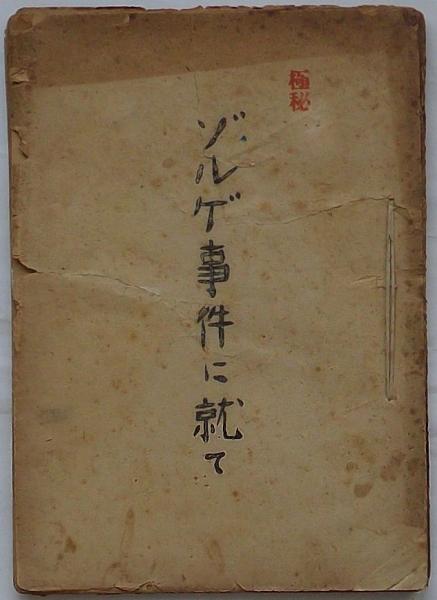 極秘
ゾルゲ事件に就て